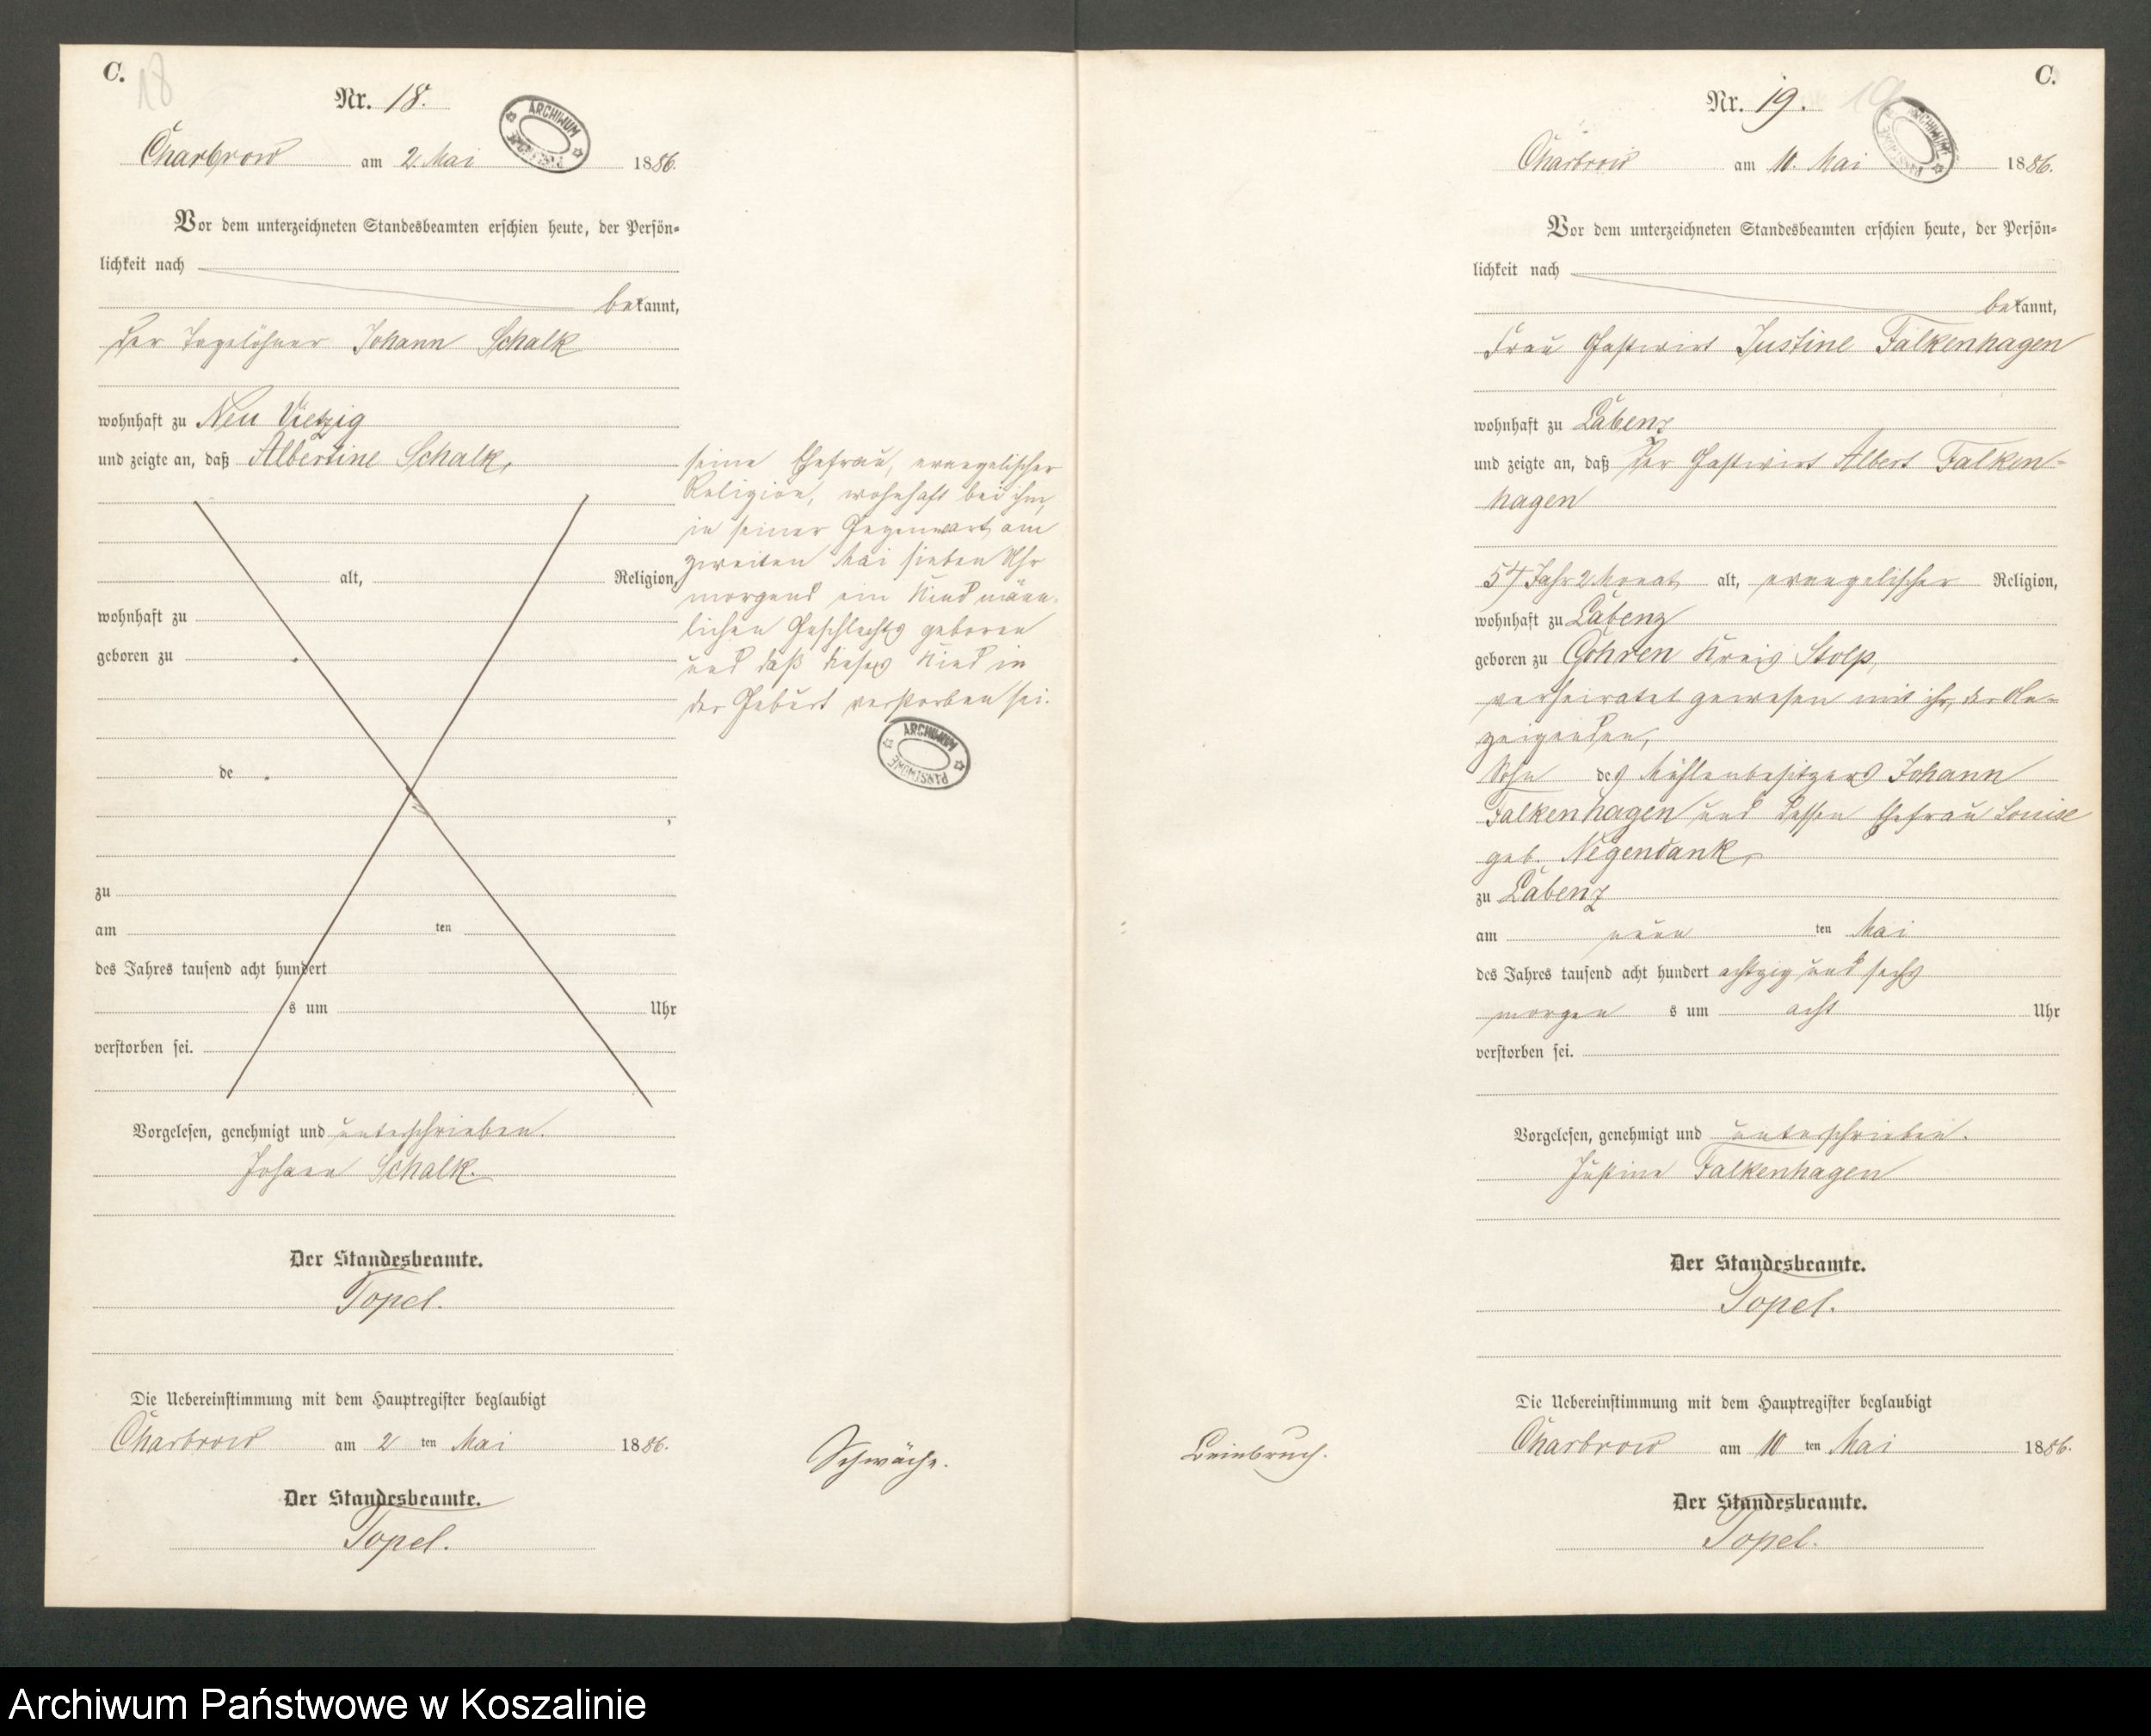 C.
18
Nr. 18.
ARCHIWUM PAŃSTWOWE
Charbrow am 2. Mai 1886.
Vor dem unterzeichneten Standesbeamten erschien heute, der Persön-
lichkeit nach
bekannt,
der Tagelöhner Johann Schalk
wohnhaft zu Neu Vietzig
und zeigte an, daß Albertine Schalk,
seine Ehefrau, evangelischer
Religion, wohnhaft bei ihm,
in seiner Gegenwart am
zweiten Mai sieben Uhr
morgens ein Kind männ-
lichen Geschlechts geboren
und daß dieses Kind in
der Geburt verstorben sei.
ARCHIWUM PAŃSTWOWE
alt, Religion,
wohnhaft zu
geboren zu
de
,
zu
am ten
des Jahres tausend acht hundert
s um Uhr
verstorben sei.
Vorgelesen, genehmigt und unterschrieben.
Johann Schalk.
Der Standesbeamte.
Topel.
Die Uebereinstimmung mit dem Hauptregister beglaubigt
Charbrow am 2 ten Mai 1886.
Schwäche.
Der Standesbeamte.
Topel.
C.
Nr. 19. 19
ARCHIWUM PAŃSTWOWE
Charbrow am 10. Mai 1886.
Vor dem unterzeichneten Standesbeamten erschien heute, der Persön-
lichkeit nach
bekannt,
Frau Gastwirt Justine Falkenhagen
wohnhaft zu Labenz
und zeigte an, daß der Gastwirt Albert Falken-
hagen
57 Jahr 2 Monat alt, evangelischer Religion,
wohnhaft zu Labenz
geboren zu Gohren Kreis Stolp,
verheiratet gewesen mit ihr, der An-
zeigenden,
Sohn des Mühlenbesitzers Johann
Falkenhagen und dessen Ehefrau Louise
geb. Negendank,
zu Labenz
am neun ten Mai
des Jahres tausend acht hundert achtzig und sechs
morgen s um acht Uhr
verstorben sei.
Vorgelesen, genehmigt und unterschrieben.
Justine Falkenhagen
Der Standesbeamte.
Topel.
Die Uebereinstimmung mit dem Hauptregister beglaubigt
Beinbruch.
Charbrow am 10 ten Mai 1886.
Der Standesbeamte.
Topel.
Archiwum Państwowe w Koszalinie